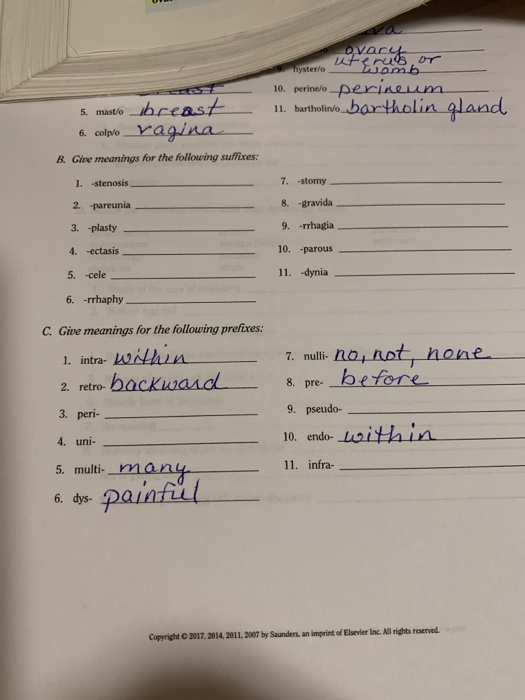 ovary
hyster/o uterus or
womb
10. perine/o perineum
5. mast/o breast
11. bartholin/o bartholin gland
6. colp/o vagina
B. Give meanings for the following suffixes:
1. -stenosis
7. -stomy
2. -pareunia
8. -gravida
3. -plasty
9. -rrhagia
4. -ectasis
10. -parous
5. -cele
11. -dynia
6. -rrhaphy
C. Give meanings for the following prefixes:
1. intra- within
7. nulli- no, not, none
2. retro- backward
8. pre- before
3. peri-
9. pseudo-
4. uni-
10. endo- within
5. multi- many
11. infra-
6. dys- painful
Copyright © 2017, 2014, 2011, 2007 by Saunders, an imprint of Elsevier Inc. All rights reserved.